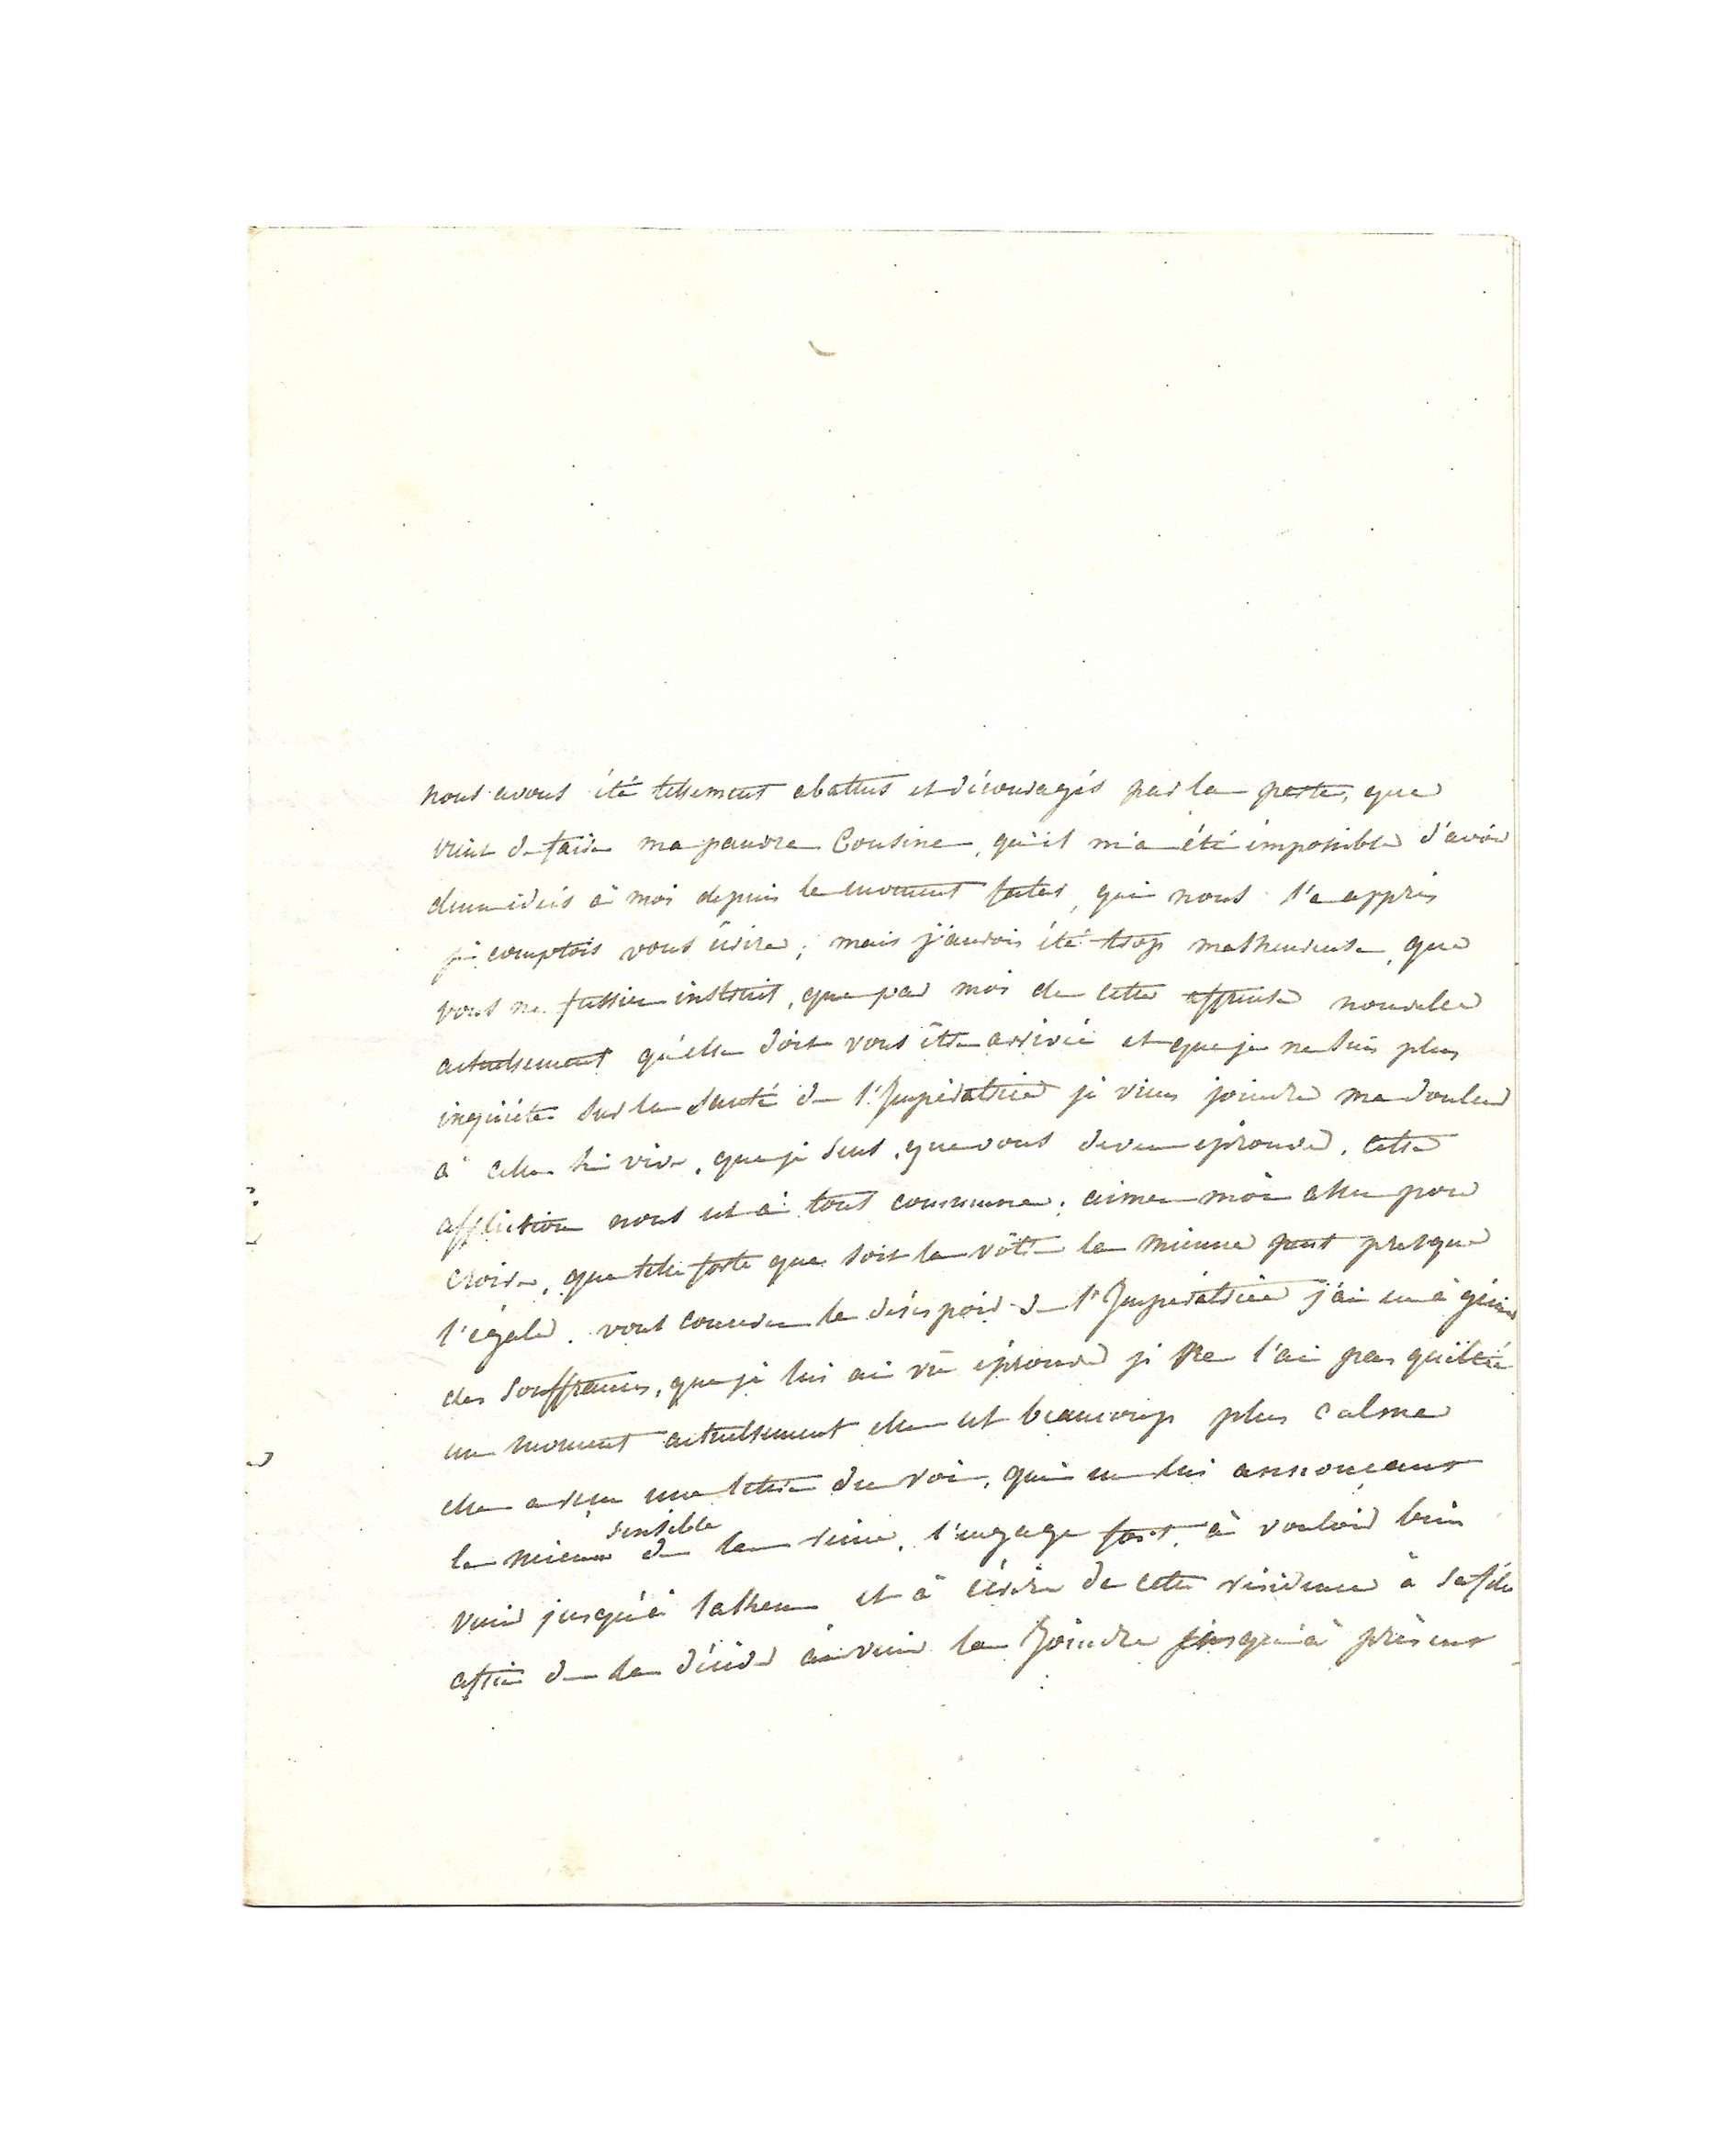 nous avons été tellement abattus et découragés par la perte, que
vient de faire ma pauvre Cousine, qu'il m'a été impossible d'avoir
deux idées à moi depuis le moment fatal, qui nous l'a appris
je comptois vous écrire; mais j'aurois été trop malheureuse, que
vous ne fussiez instruit, que par moi de cette affreuse nouvelle
actuellement qu'elle doit vous être arrivée et que je ne suis plus
inquiéte sur la santé de l'Impératrice je viens joindre ma douleur
à celle si vive, que je sens, que vous devez éprouver. cette
affliction nous est à tous commune; aimez moi assez pour
croire, que telle forte que soit la vôtre la mienne peut presque
l'égaler. vous concevez le désespoir de l'Impératrice j'ai eu à gémir
des souffrances, que je lui ai vu éprouver je ne l'ai pas quittée
un moment actuellement elle est beaucoup plus calme
elle a reçu une lettre du roi, qui en lui annonçant
le mieux sensible de la reine, l'engage fort, à vouloir bien
venir jusqu'à Lathen et à écrire de cette résidence à sa fille
affin de la décider à venir la joindre jusqu'à présent